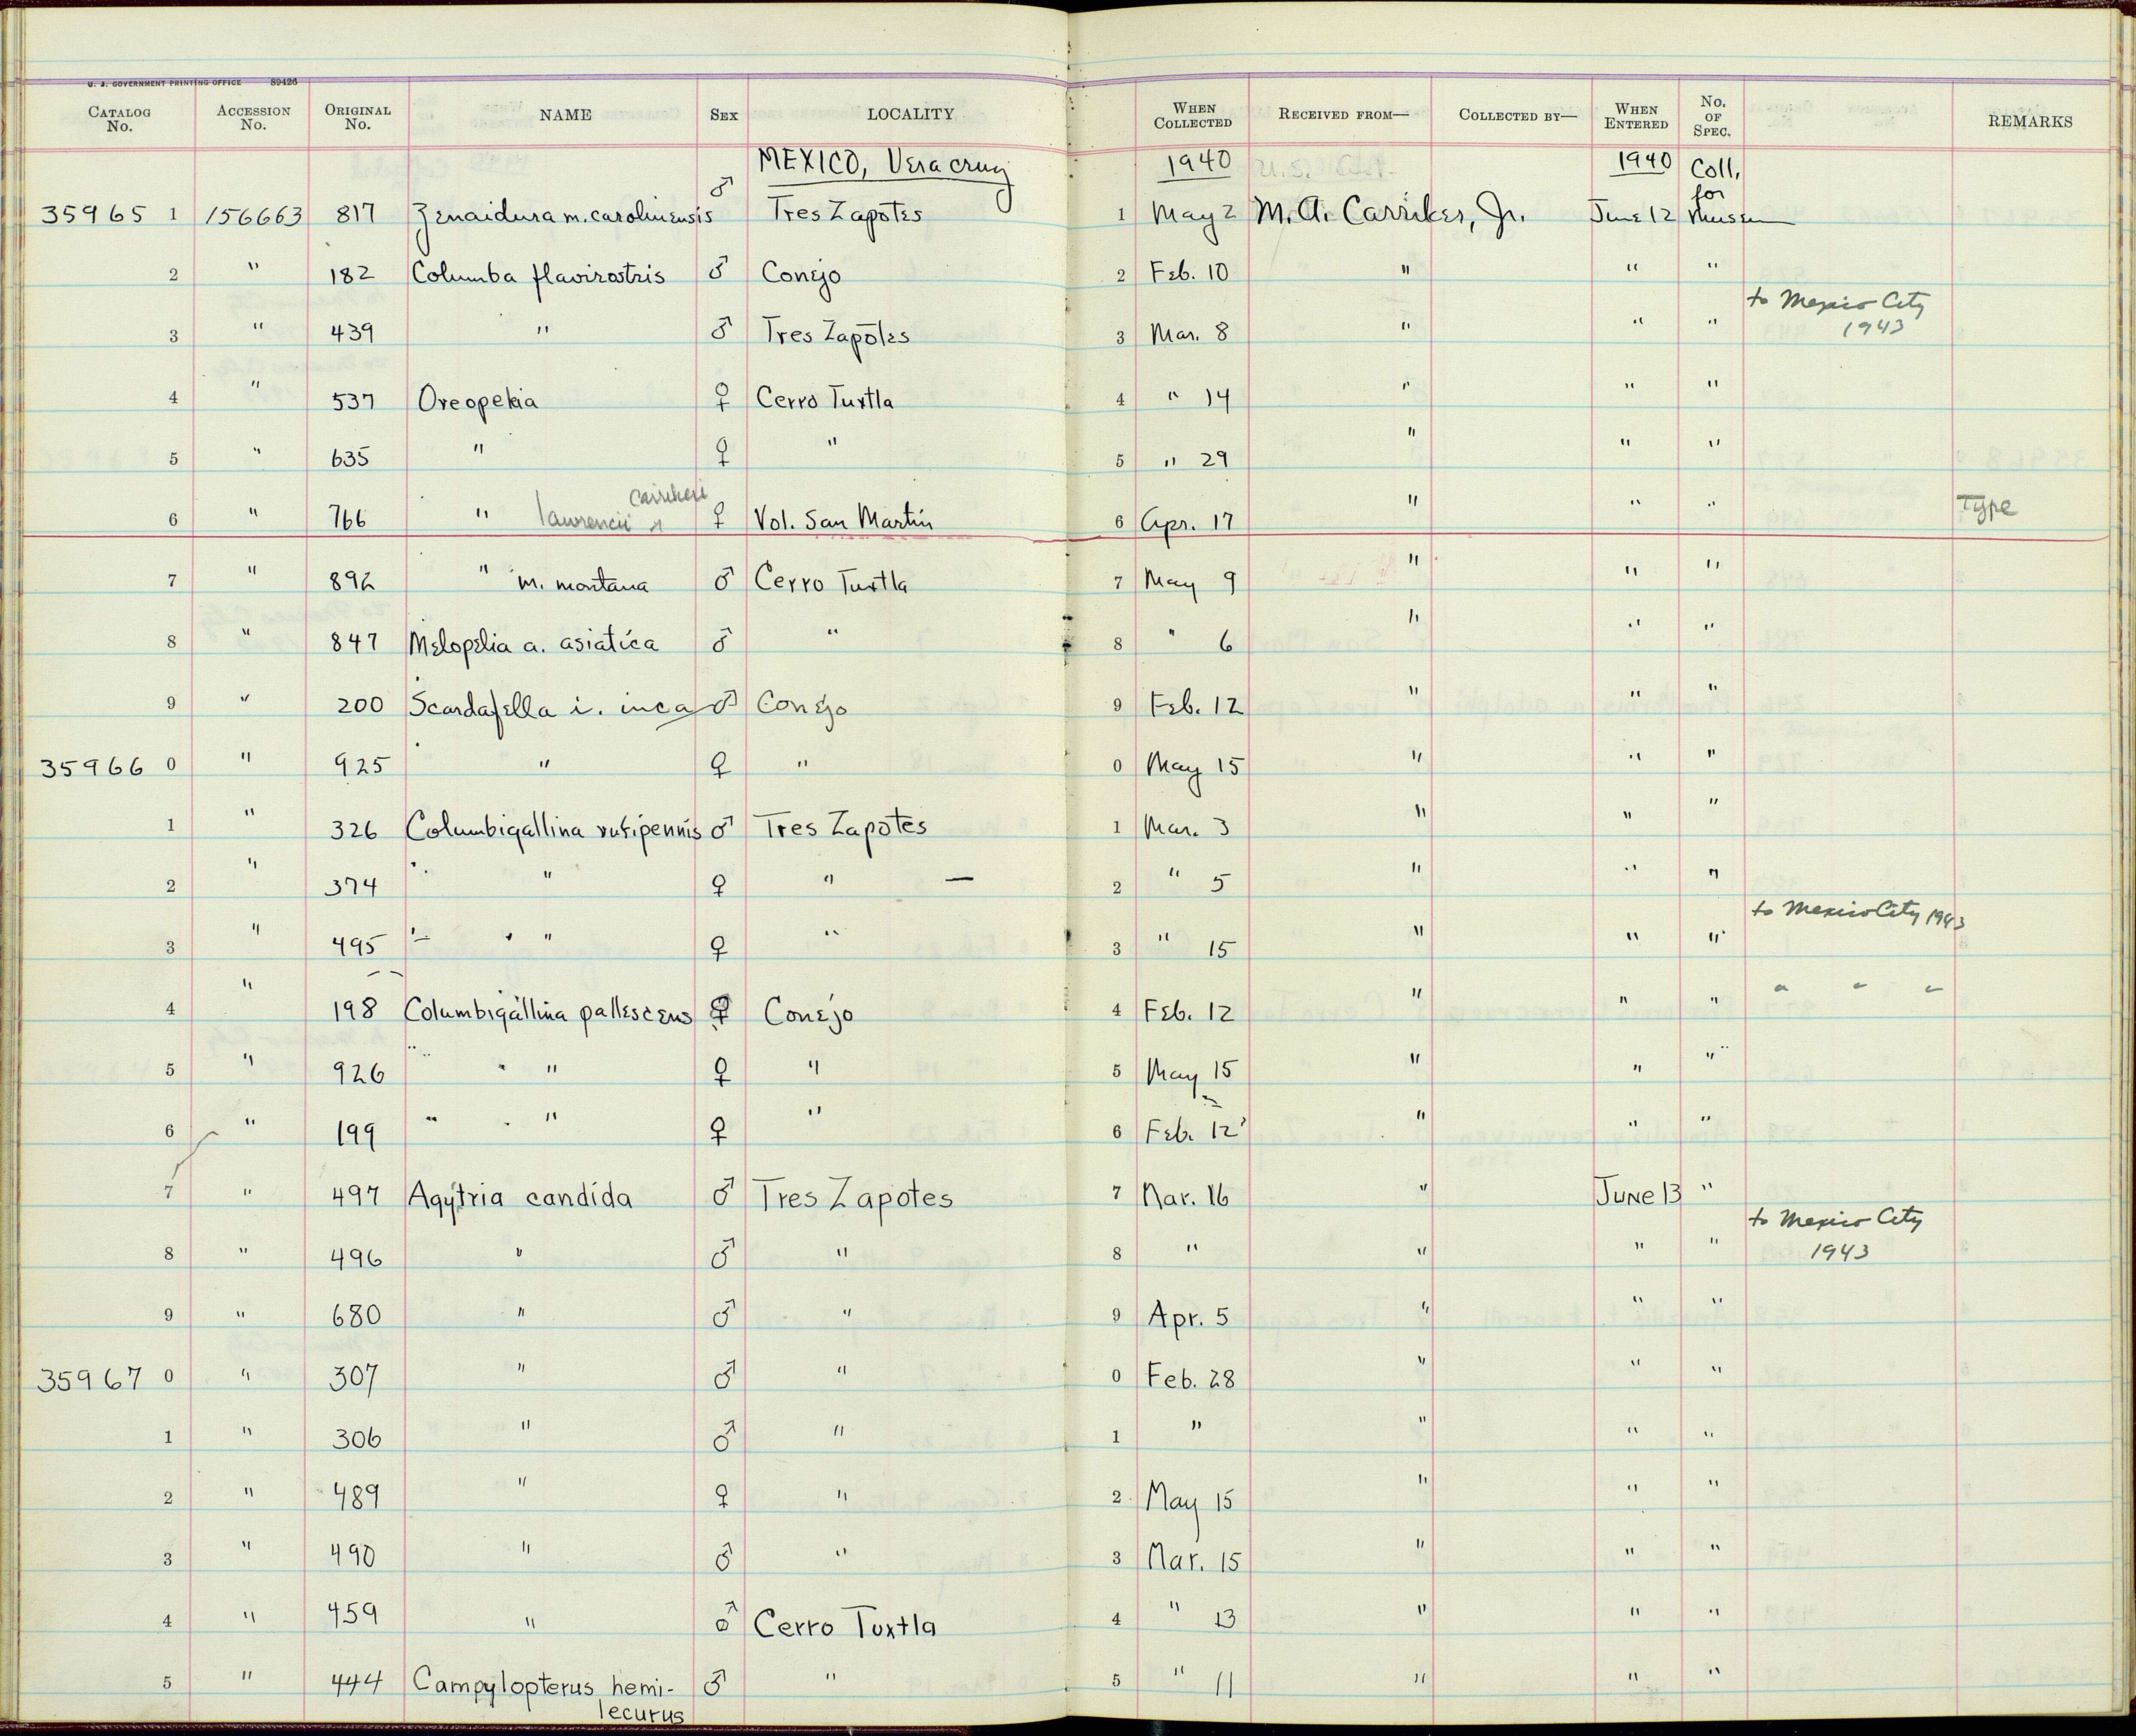 U. S. GOVERNMENT PRINTING OFFICE 89426
CATALOG No. ACCESSION No. ORIGINAL No. NAME SEX LOCALITY WHEN COLLECTED RECEIVED FROM— COLLECTED BY— WHEN ENTERED No. OF SPEC. REMARKS
MEXICO, Vera cruz 1940 1940 Coll. for
35965 1 156663 817 Zenaidura m. carolinensis ♂ Tres Zapotes 1 May 2 M. A. Carriker, Jr. June 12 Museum
2 " 182 Columba flavirostris ♂ Conejo 2 Feb. 10 " " "
3 " 439 " ♂ Tres Zapotes 3 Mar. 8 " " " to Mexico City 1943
4 " 537 Oreopeleia ♀ Cerro Tuxtla 4 " 14 " " "
5 " 635 " ♀ " 5 " 29 " " "
6 " 766 " lawrencii carrikeri ♀ Vol. San Martín 6 Apr. 17 " " " Type
7 " 892 " m. montana ♂ Cerro Tuxtla 7 May 9 " " "
8 " 847 Melopelia a. asiatica ♂ " 8 " 6 " " "
9 " 200 Scardafella i. inca ♂ Conejo 9 Feb. 12 " " "
35966 0 " 925 " " ♀ " 0 May 15 " " "
1 " 326 Columbigallina rufipennis ♂ Tres Zapotes 1 Mar. 3 " " "
2 " 374 " " ♀ " — 2 " 5 " " "
3 " 495 " " " ♀ " 3 " 15 " " " to Mexico City 1943
4 " 198 Columbigallina pallescens ♀ Conejo 4 Feb. 12 " " " " " "
5 " 926 " " " ♀ " 5 May 15 " " "
6 " 199 " " " ♀ " 6 Feb. 12 " " "
7 " 497 Agytria candida ♂ Tres Zapotes 7 Mar. 16 " June 13 "
8 " 496 " ♂ " 8 " " " " to Mexico City 1943
9 " 680 " ♂ " 9 Apr. 5 " " "
35967 0 " 307 " ♂ " 0 Feb. 28 " " "
1 " 306 " ♂ " 1 " " " "
2 " 489 " ♀ " 2 May 15 " " "
3 " 490 " ♂ " 3 Mar. 15 " " "
4 " 459 " ♂ Cerro Tuxtla 4 " 13 " " "
5 " 444 Campylopterus hemi- ♂ " 5 " 11 " " "
lecurus